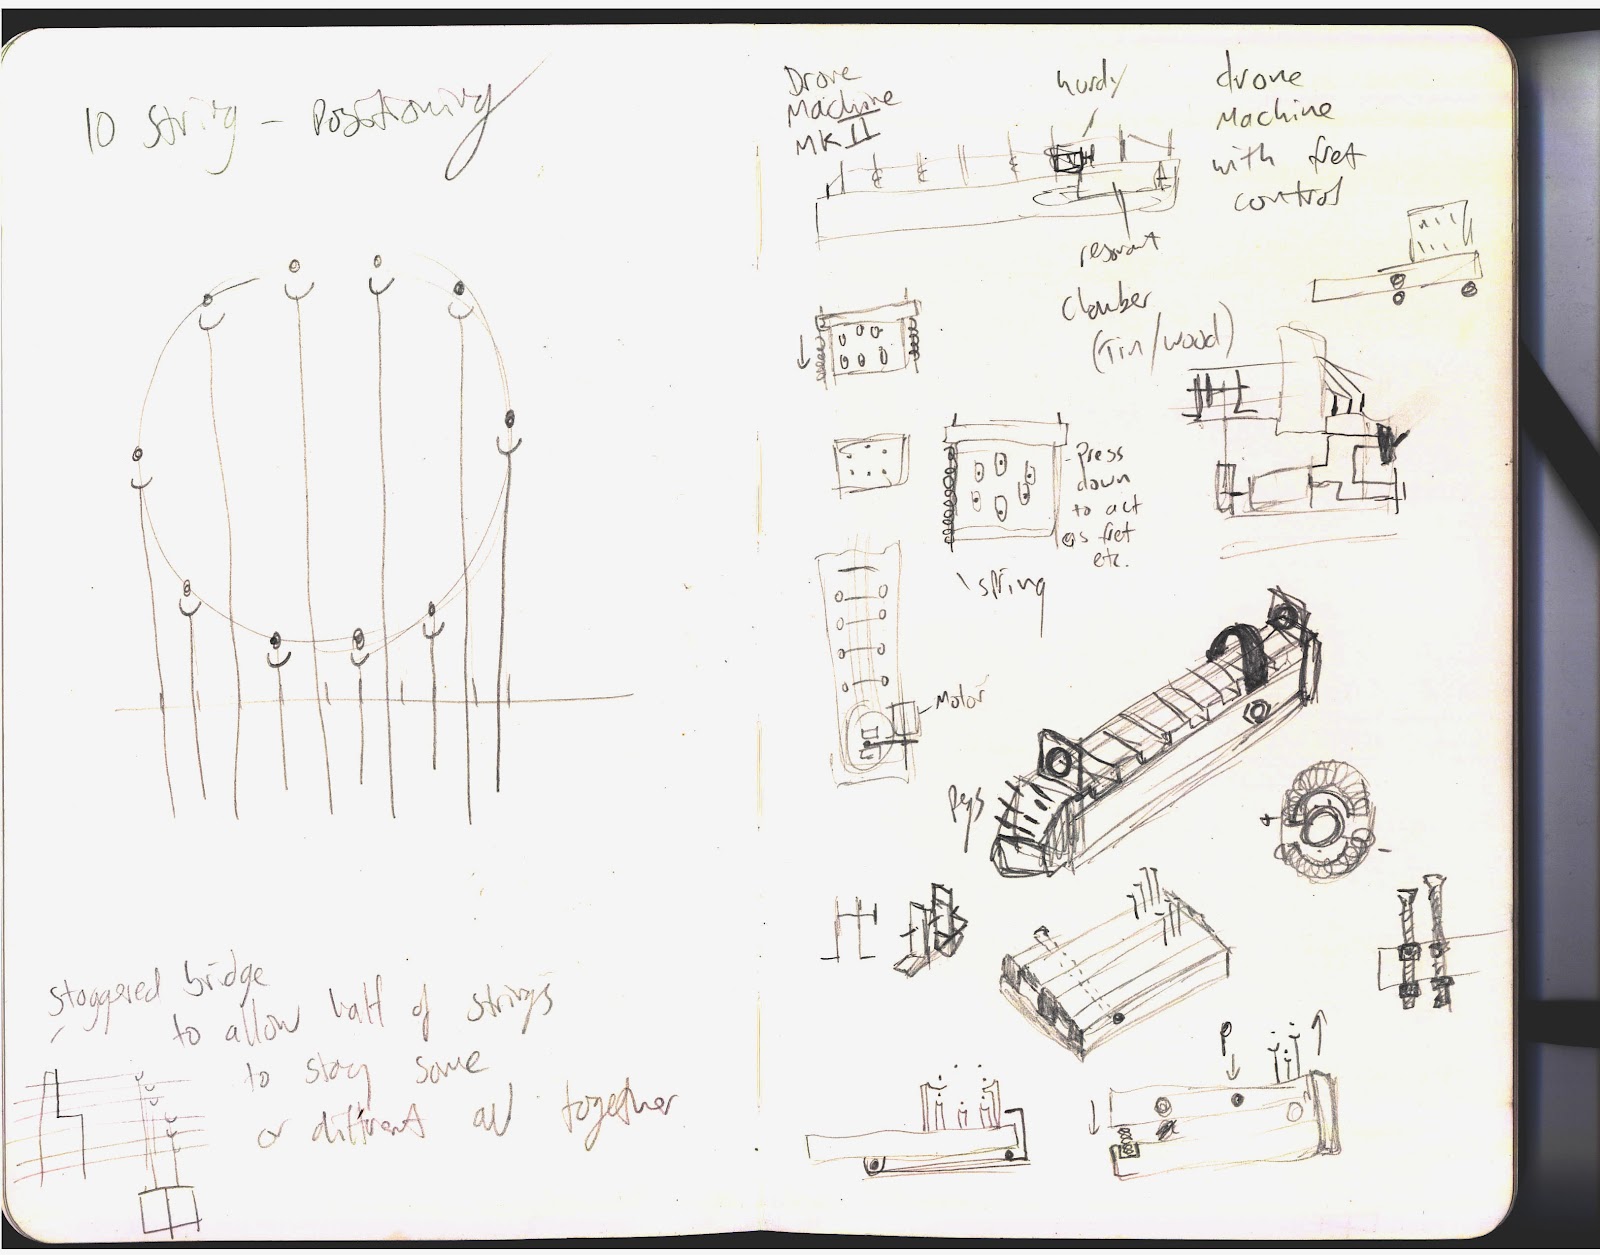 10 String - Positioning
Staggered bridge
to allow half of strings
to stay same
or different all together
Drone
Machine
MK II
hurdy
drone
Machine
with fret
control
resonant
Chamber
(Tin/wood)
Press
down
to act
as fret
etc.
spring
Motor
Pegs
+
-
P